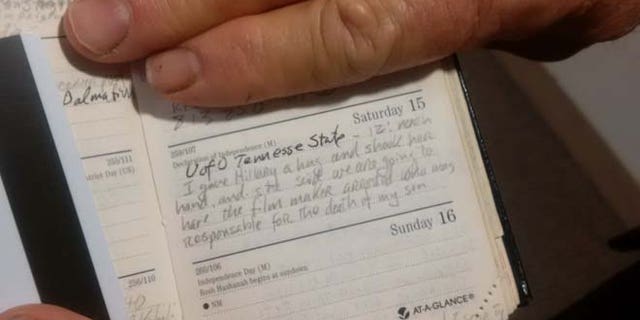 Dalmati
255/111
trict Day (US)
256/110
Saturday 15
259/107
Declaration of Independence (M)
U of O Tennesse State - 12: noon
I gave Hillary a hug and shook her
hand. and she said we are going to
have the film maker arrested who was
responsable for the death of my son
Sunday 16
260/106
Independence Day (M)
Rosh Hashanah begins at sundown
● NM
AT-A-GLANCE®